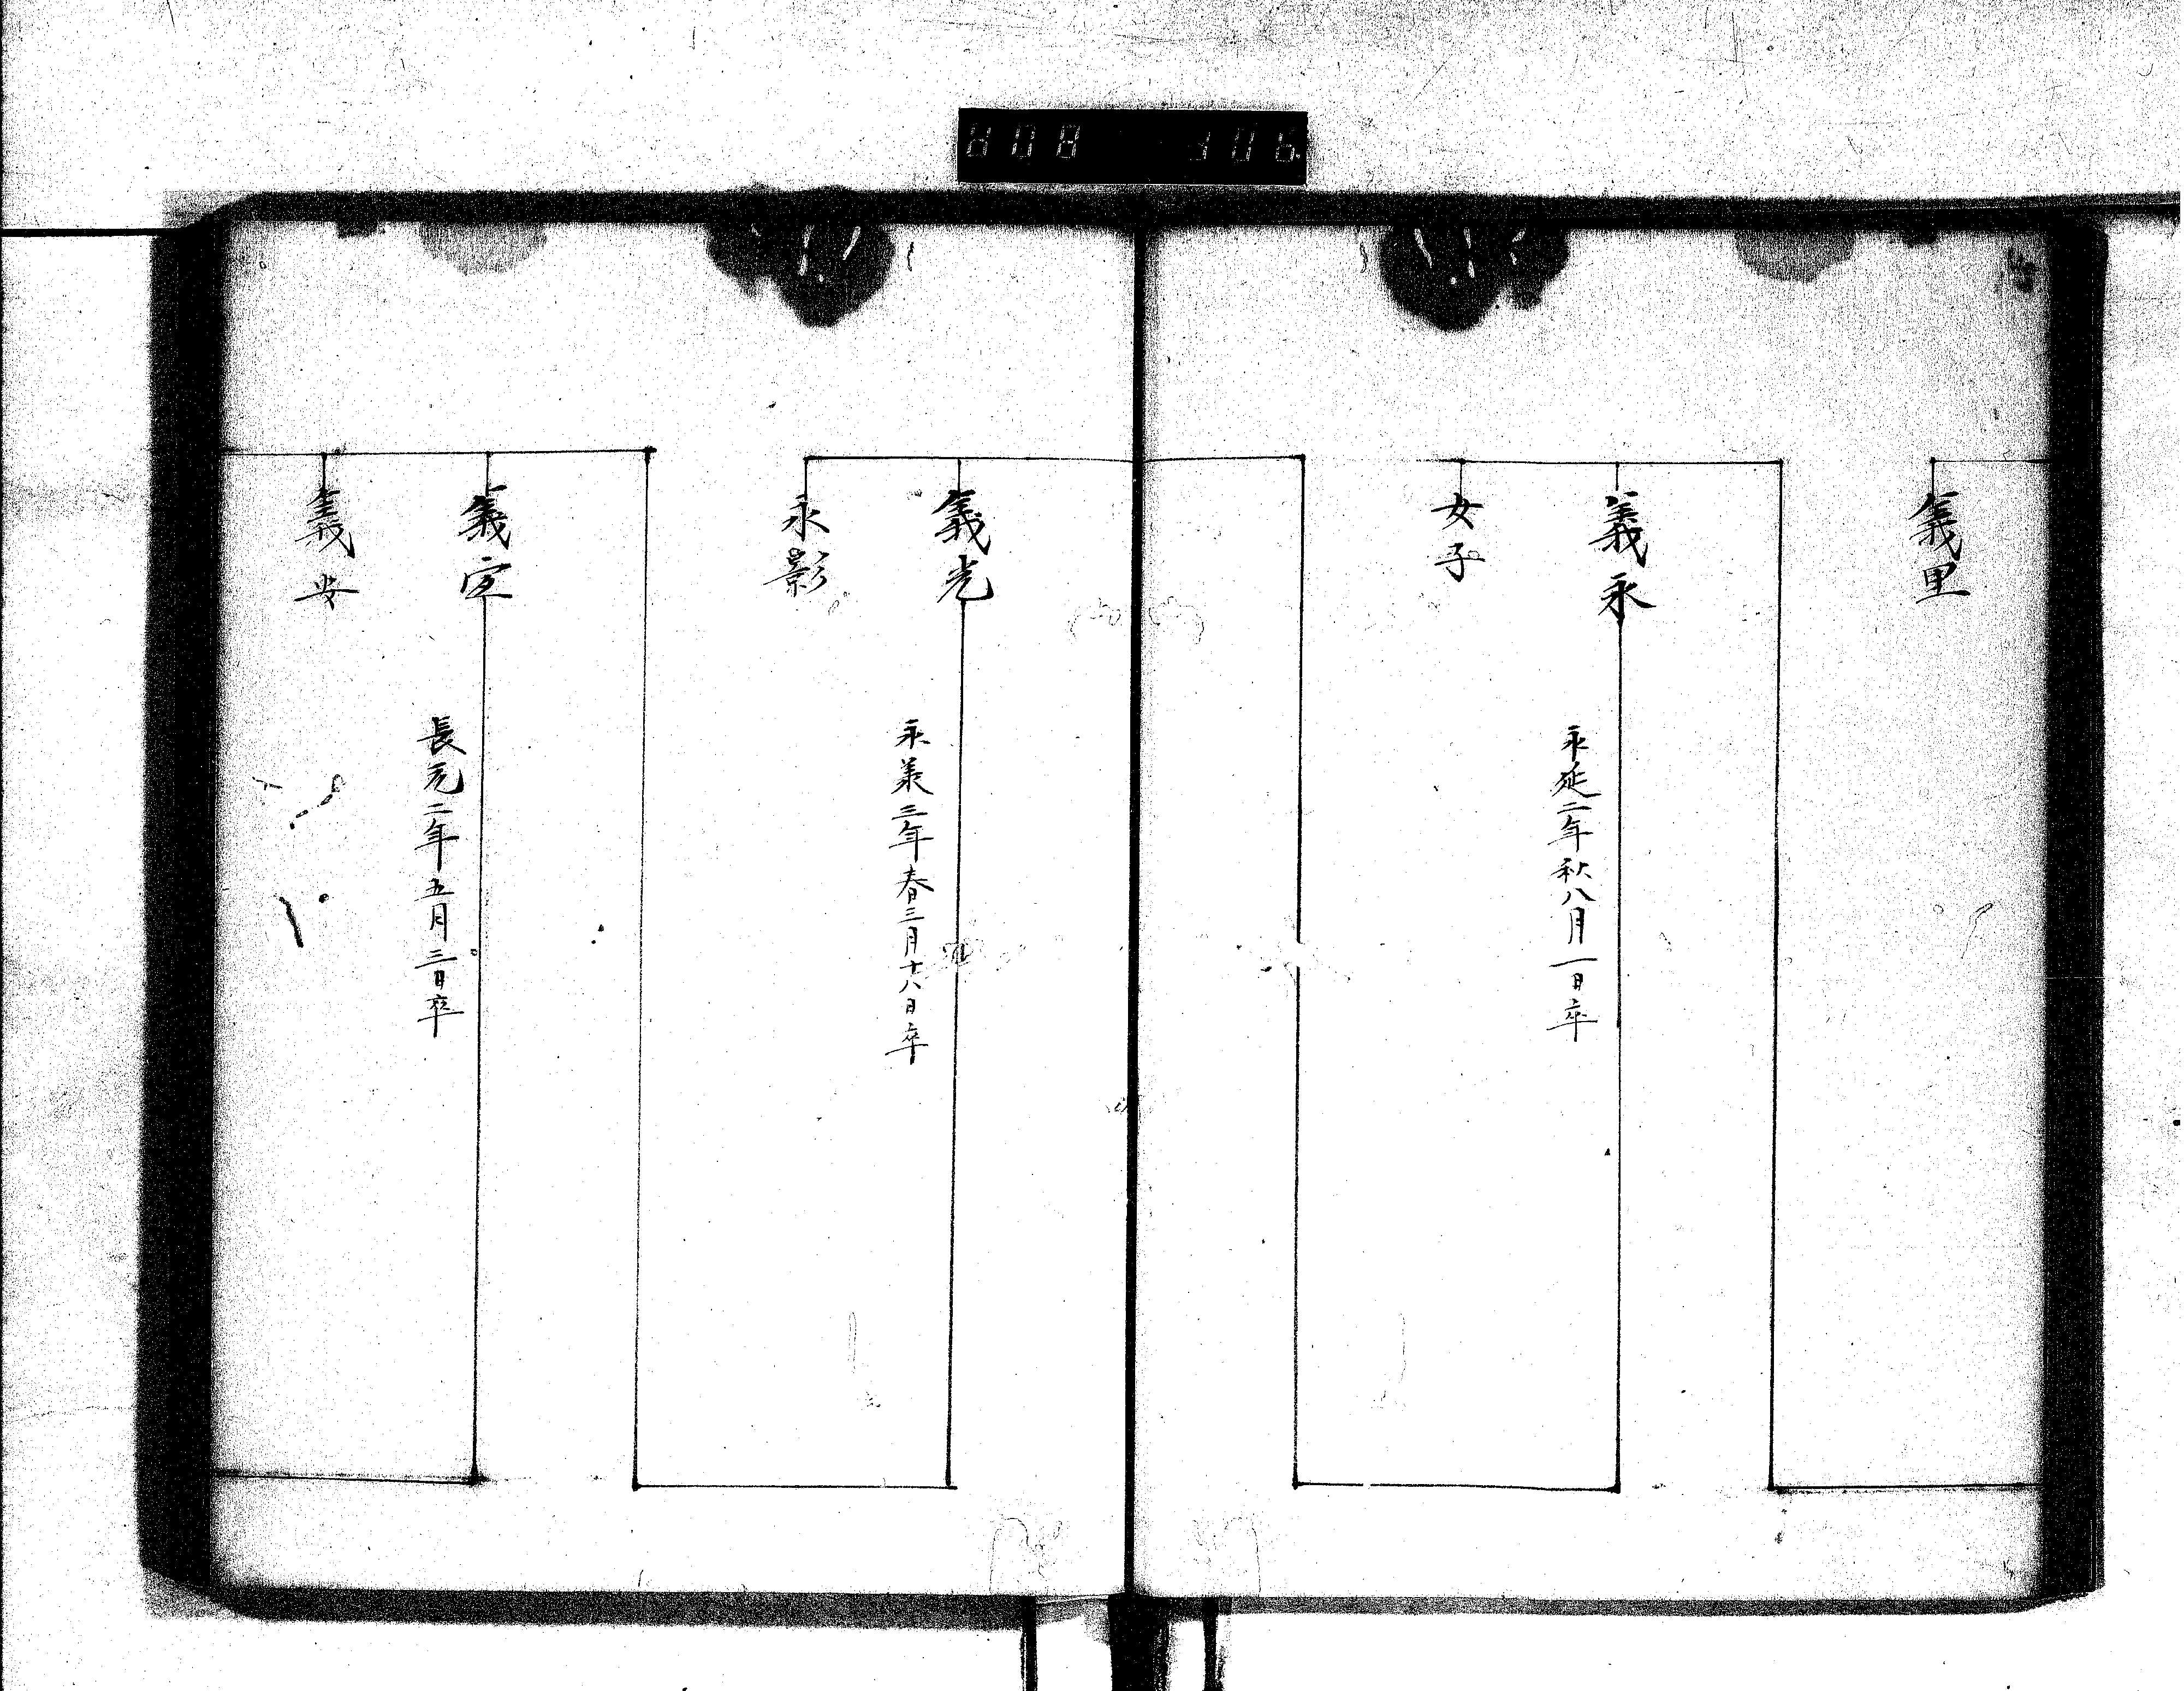 義里
義永
永延二年秋八月一日卒
女子
義光
永 三年春三月十八日卒
永影
義宣
長元二年五月三日卒
義安